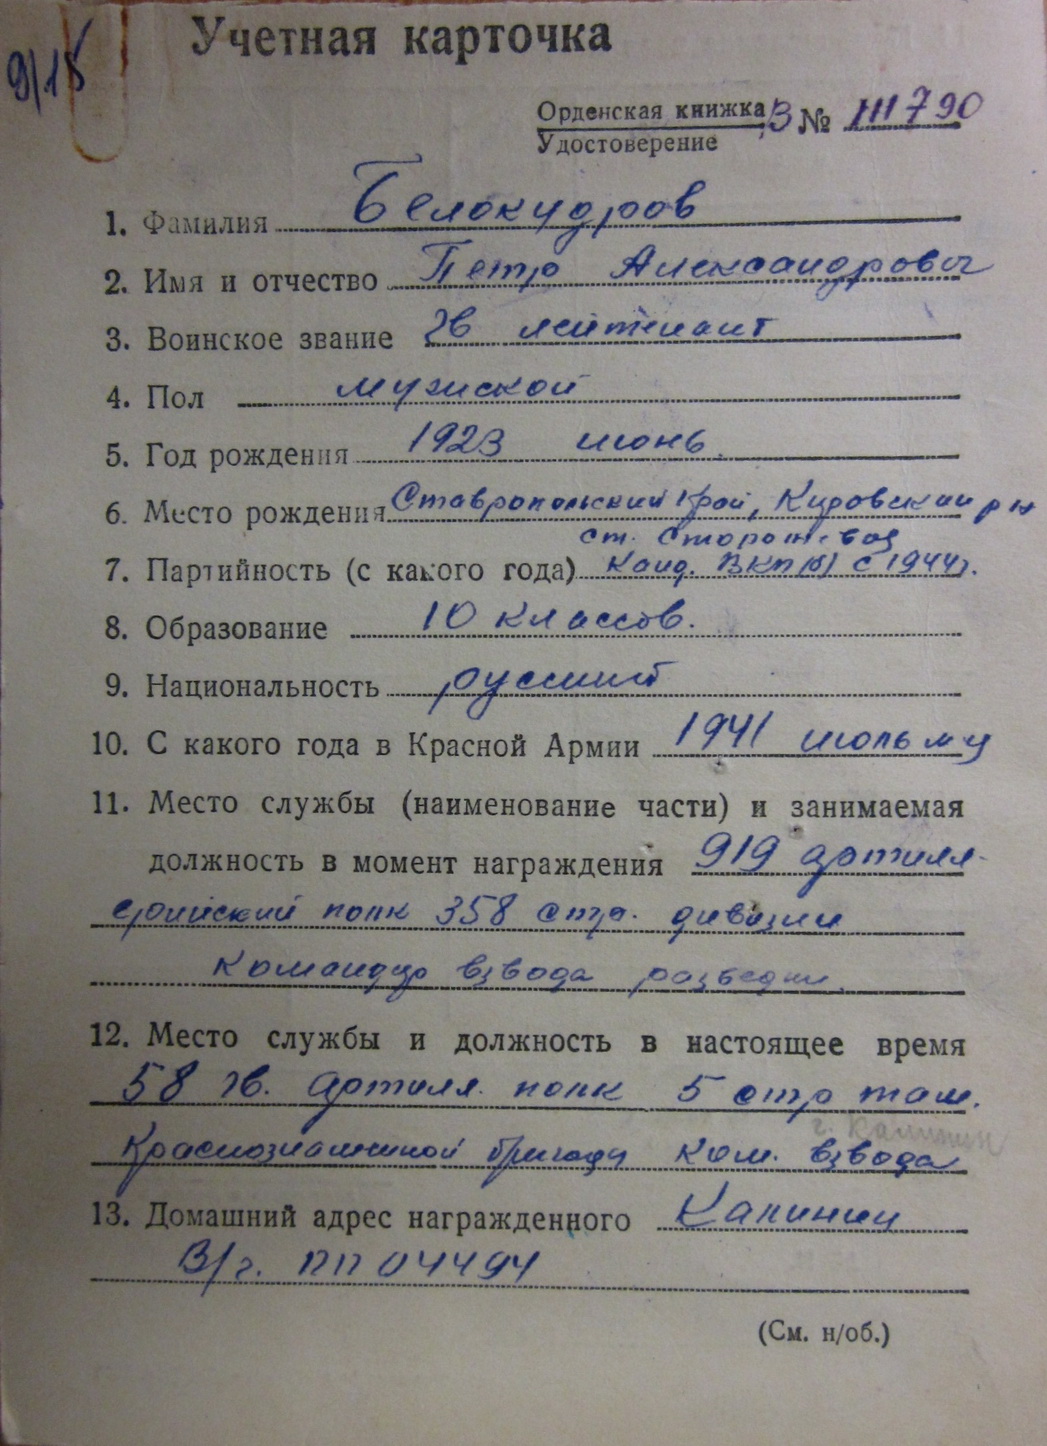 9/15
Учетная карточка
Орденская книжка В № 111790
Удостоверение
1. Фамилия Белокудров
2. Имя и отчество Петр Александрович
3. Воинское звание гв лейтенант
4. Пол мужской
5. Год рождения 1923 июнь.
6. Место рождения Ставропольский край, Кировский р н
ст. Сторожевая
7. Партийность (с какого года) Канд. ВКП(б) с 1944г.
8. Образование 10 классов.
9. Национальность русский
10. С какого года в Красной Армии 1941
11. Место службы (наименование части) и занимаемая
должность в момент награждения 919 артилл-
ерийский полк 358 стр. дивизии
командир взвода разведки.
12. Место службы и должность в настоящее время
58 гв. артилл. полк 5 стр там.
г. Калинин
Краснознаменной бригады ком. взвода
13. Домашний адрес награжденного Калинин
В/ч. ПП 04494
(См. н/об.)